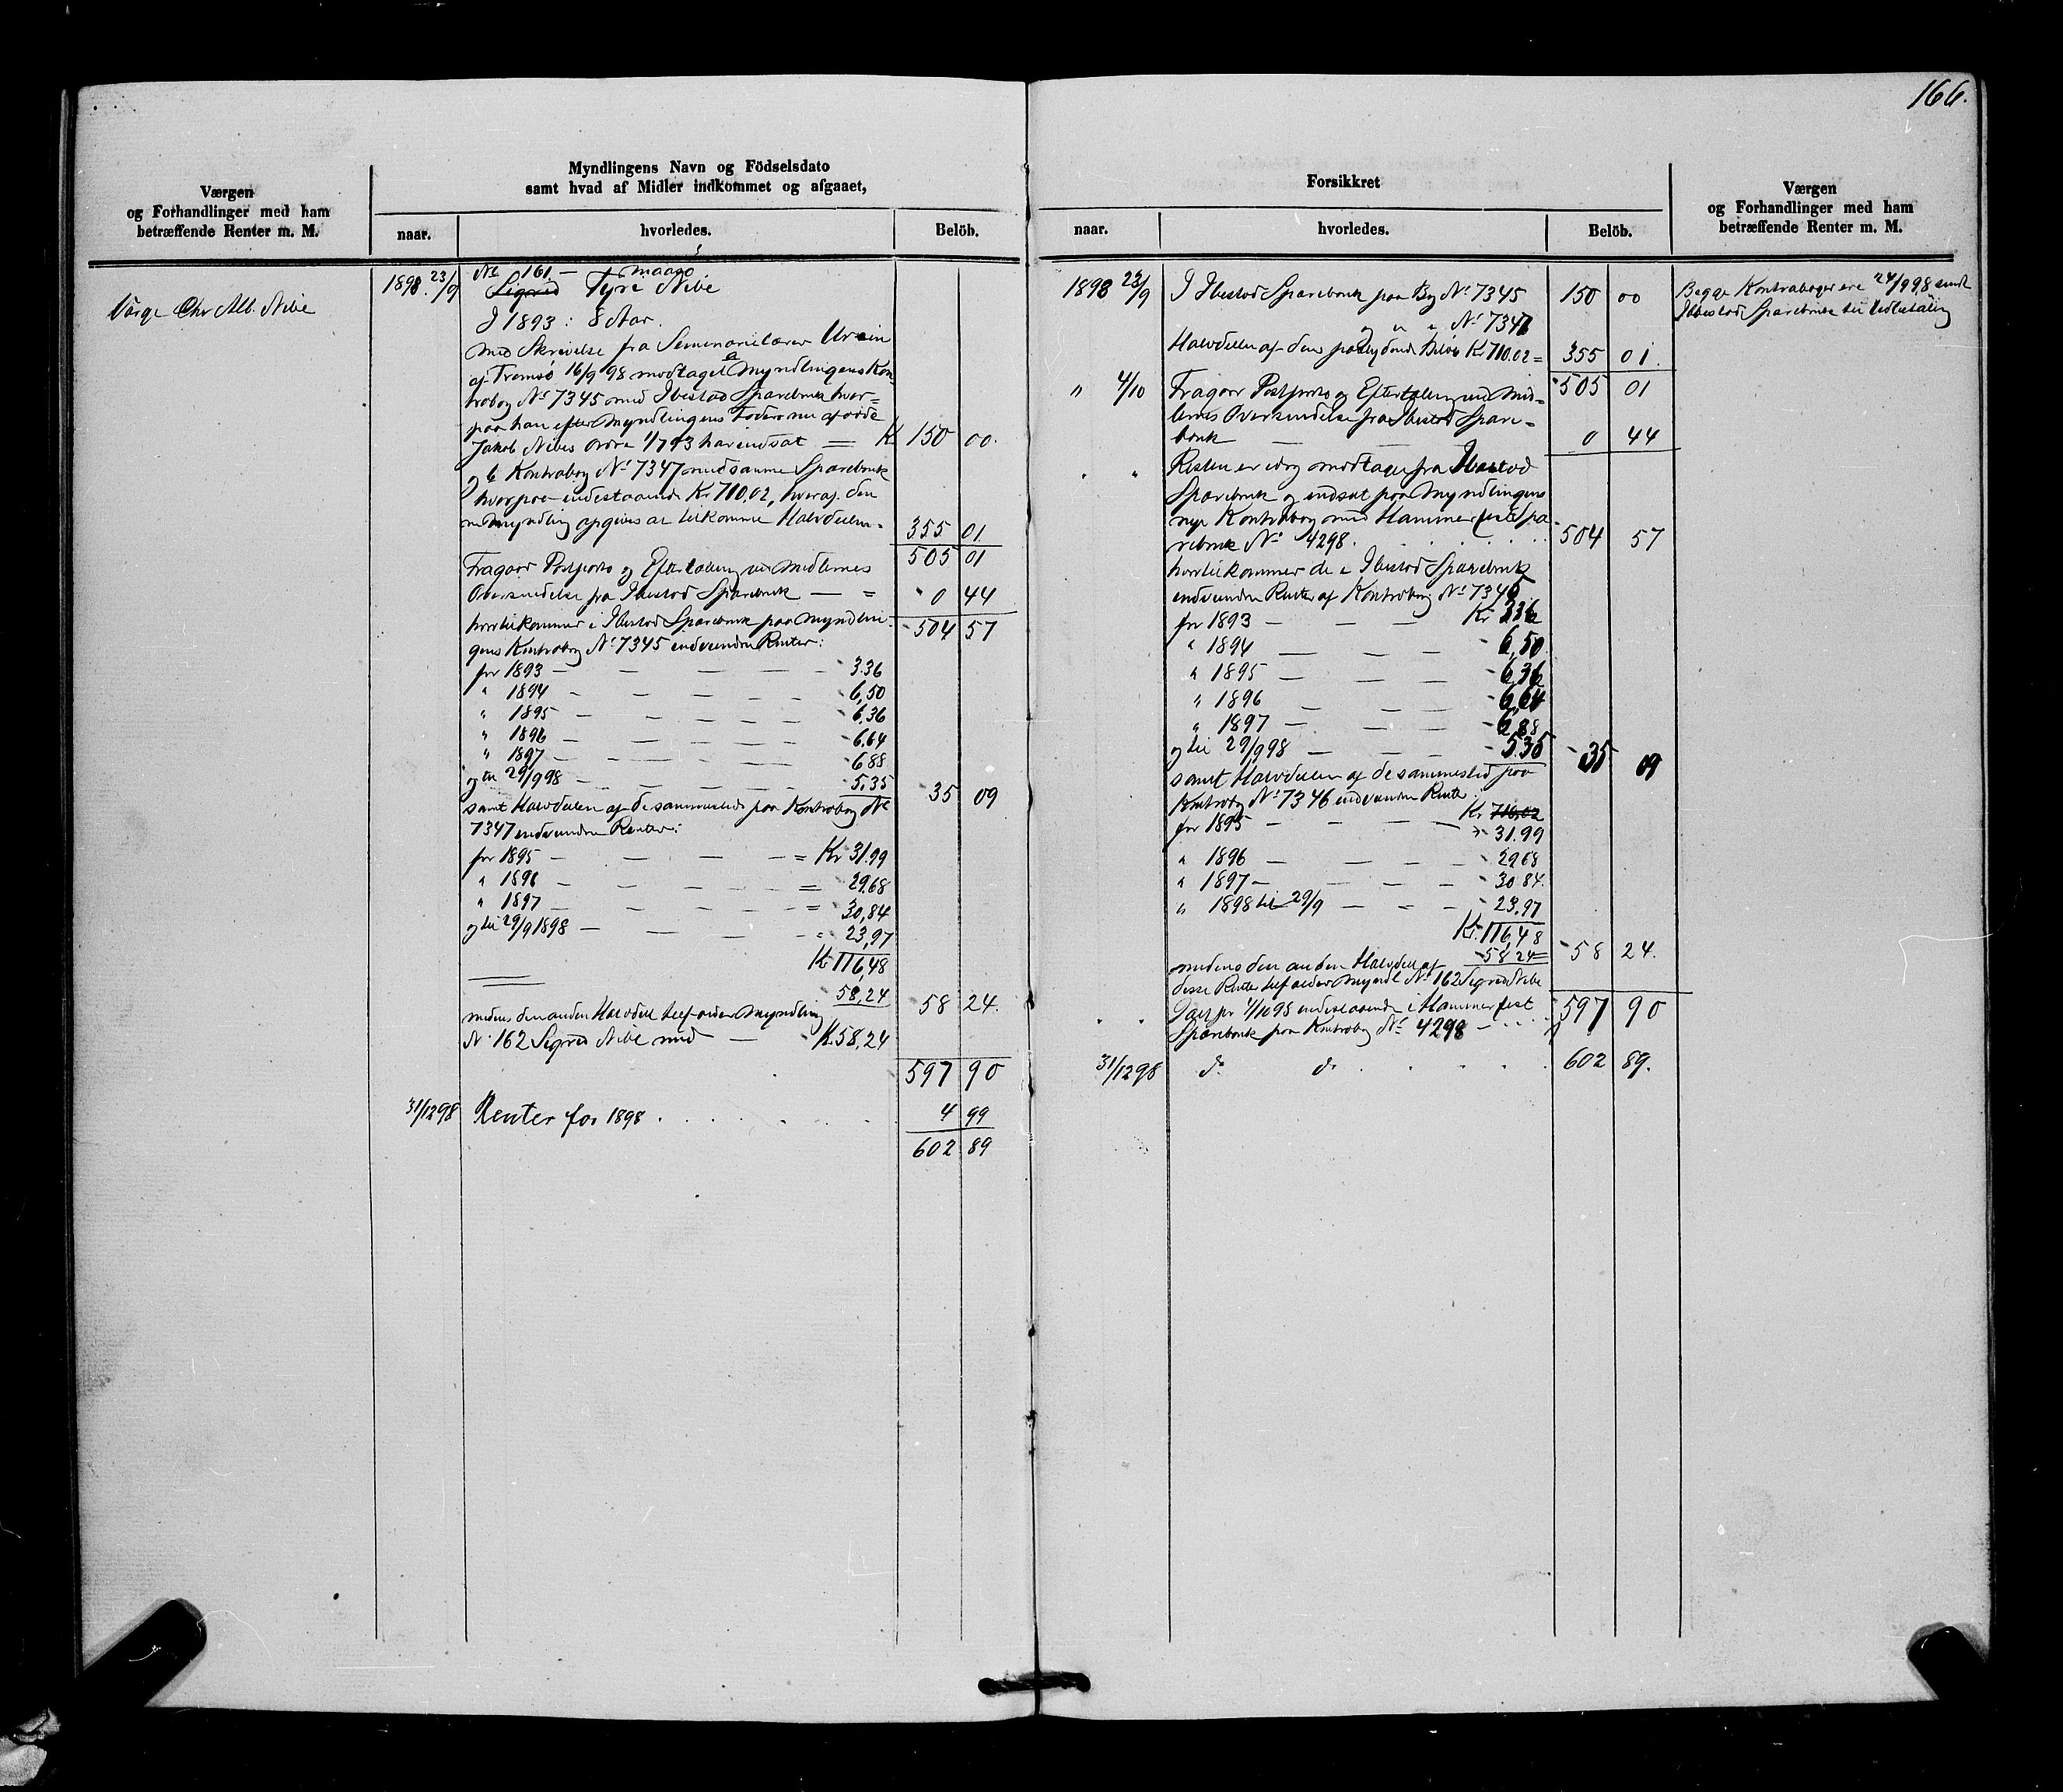 166.
Værgen
og Forhandlinger med ham
betræffende Renter m. M.
Myndlingens Navn og Födselsdato
samt hvad af Midler indkommet og afgaaet,
naar.
hvorledes.
Belöb.
Værge Chr Alb. Nibe
1898. 23/9
No 161. —
Sigrid Tyra Nibe
I 1893: 8 Aar.
Med Skrivelse fra Seminarielærer Ursin
af Tromsø 16/9 98 modtaget Myndlingens Kon-
trabog No 7345 med Ibestad Sparebank hvor=
paa han efter Myndlingens Faders nu afdøde
Jakob Nibes Ordre 1/7 93 har indsat = Kr 150 00.
og Kontrabog No 7347 med samme Sparebank
hvorpaa indestaaende Kr 710,02, hvoraf den
ne Myndling opgives at tilkomme Halvdelen = 355 01
505 01
Fragaar Postporto og Eftertælling ved Midlernes
Oversendelse fra Ibestad Sparebank — = - 0 44
hvortil kommer i Ibestad Sparebank paa Myndlin- - 504 57
gens Kontrabog No 7345 indvundne Renter:
for 1893 — — — — - 3.36
" 1894 - — — — - 6,50
" 1895 — — — — - 6.36
" 1896 — — — — - 6.64
" 1897 — — — — - 6 88
og til 29/9 98 — — — - 5,35 - 35 09
samt Halvdelen af de sammesteds paa Kontrabog No
7347 indvundne Renter:
for 1895 — — — — = Kr 31.99
" 1896 — — — — = 29.68
" 1897 — — — — = 30,84
og til 29/9 1898 — — — = 23,97
Kr 116,48
58,24 58 24.
medens den anden Halvdel tilfalder Myndling
No 162 Sigrid Nibe med — Kr 58,24
597 90
31/12 98 Renter for 1898 . . . . . 4 99
602 89
Forsikkret
naar.
hvorledes.
Belöb.
Værgen
og Forhandlinger med ham
betræffende Renter m. M.
1898 23/9 I Ibestad Sparebank paa Bog No 7345 150 00
og " " No 7347
Halvdelen af den paalydende Beløb Kr 710.02 = 355 01.
505 01
" 4/10 Fragaar Postporto og Eftertælling ved Mid=
lernes Oversendelse fra Ibestad Spare=
bank — — — 0 44
" " Resten er idag modtaget fra Ibestad
Sparebank og indsat paa Myndlingens
nye Kontrabog med Hammerfest Spa
rebank No 4298. . . . . . - 504 57
hvortil kommer de i Ibestad Sparebank
indvundne Renter af Kontrabog No 7345
for 1893 — — — Kr 3 36
" 1894 — — — - 6,50
" 1895 — — — - 6,36
" 1896 — — — - 6,64
" 1897 — — — - 6,88
og til 29/9 98 — — - 5 35 - 35 09
samt Halvdelen af de sammested paa
Kontrabog No 7346 indvundne Renter:
Kr 710,02
for 1895 — — — - 31.99
" 1896 — — — - 29 68
" 1897 — — — - 30 84.
" 1898 til 29/9 — — - 23,97
Kr. 116,48
- 58 24 = - 58 24.
medens den anden Halvdel af
disse Renter tilfalder Myndl No 162 Sigrid Nibe
" " 1/10 98 indestaaende i Hammerfest
Sparebank paa Kontrabog No 4298 — . . . 597 90
31/12 98 do do . . . . . 602 89.
Begge Kontrabøger ere 24/9 98 sendt
Ibbestad Sparebank til Udbetaling